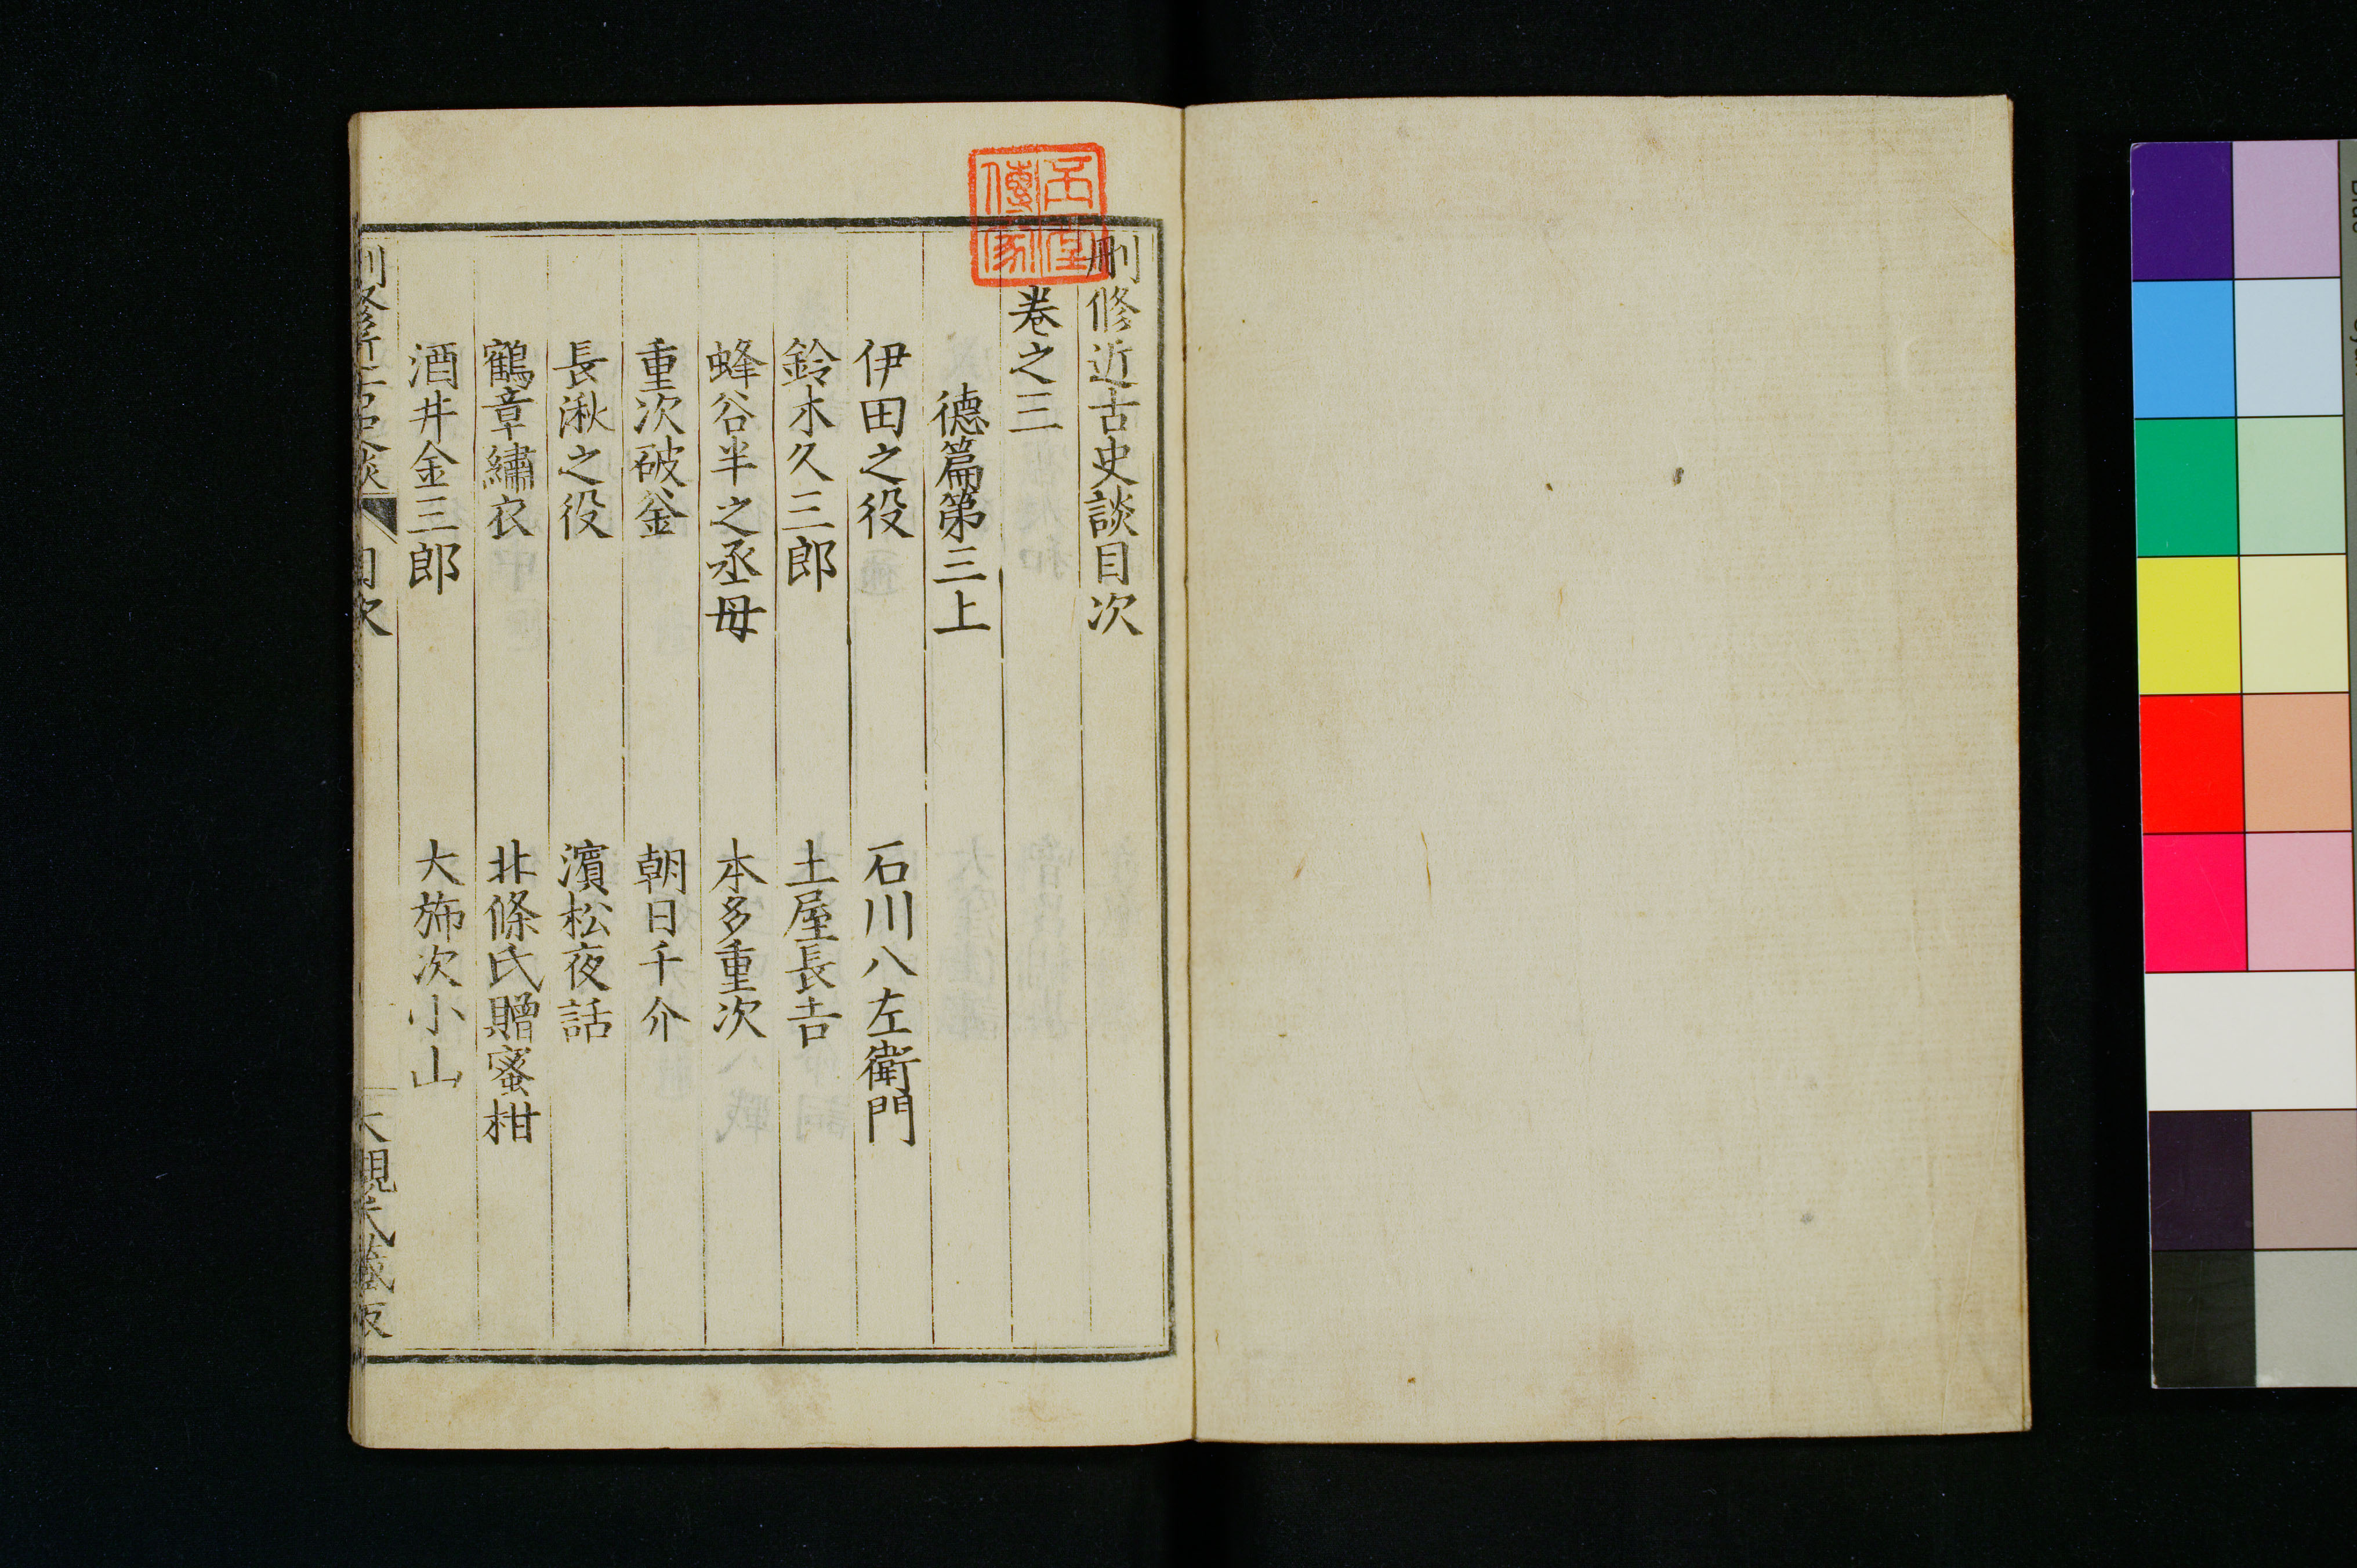 刪修近古史談目次
卷之三
德篇第三上
伊田之役　石川八左衛門
鈴木久三郎　土屋長吉
蜂谷半之丞母　本多重次
重次破釜　朝日千介
長湫之役　濱松夜話
鶴章繡衣　北條氏贈蜜柑
酒井金三郎　大旆次小山
刪修近古史談　目次　大槻氏藏版